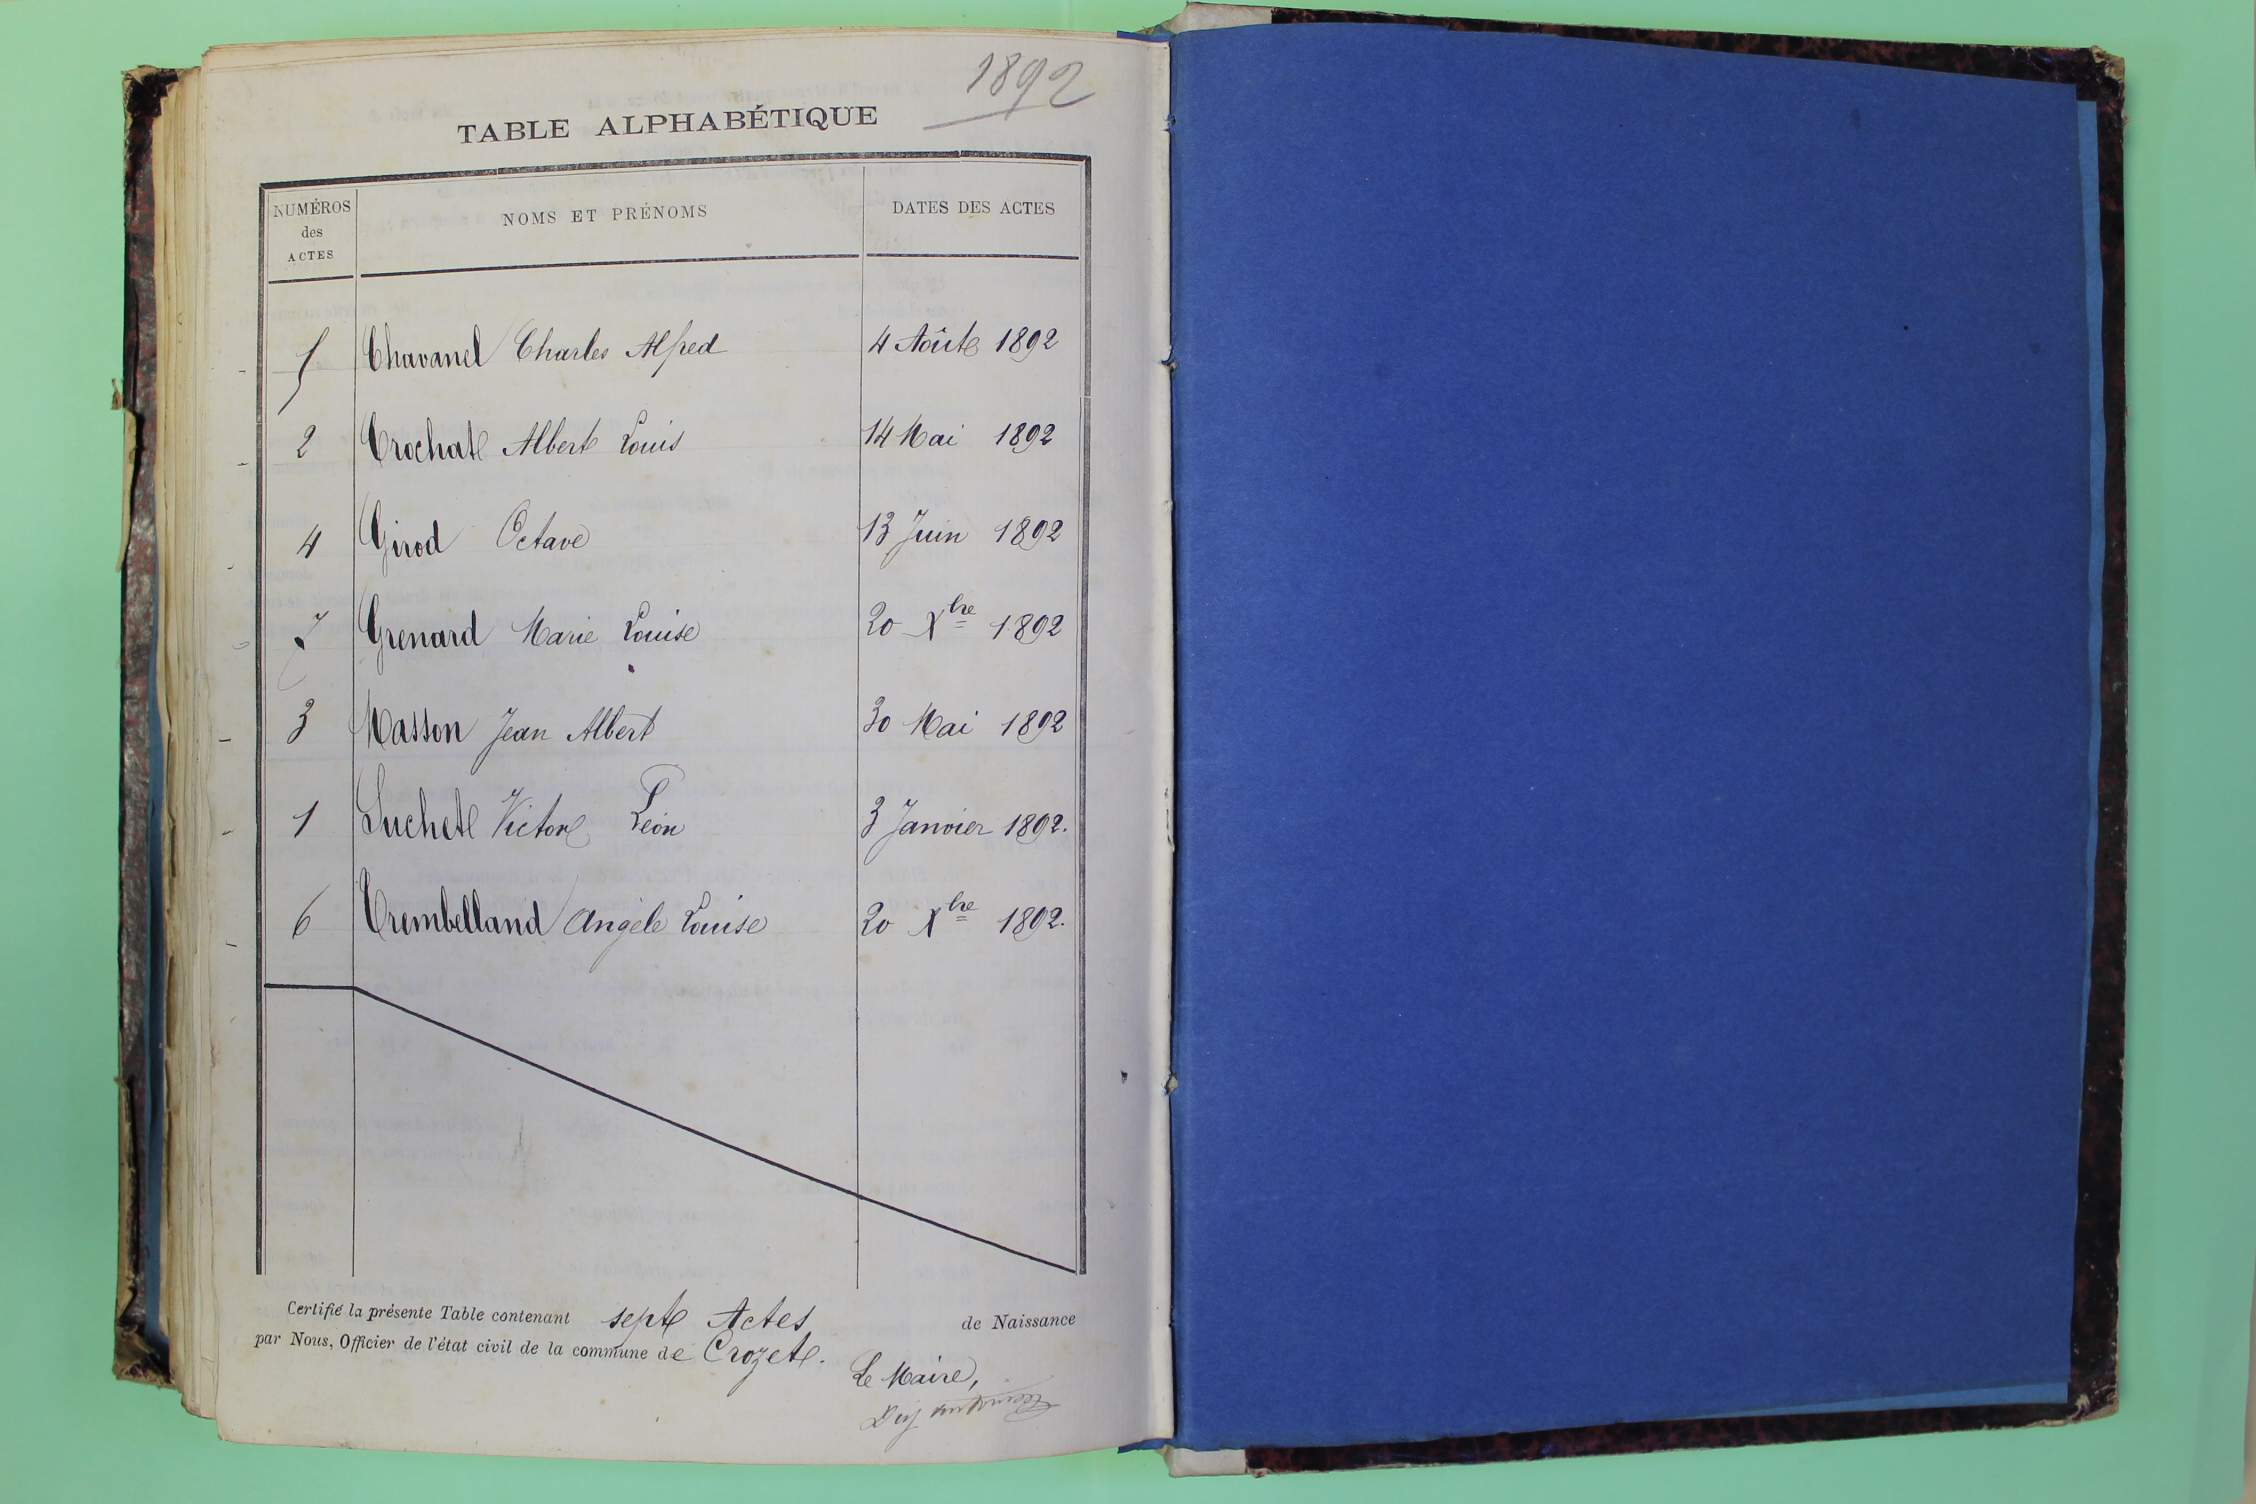 1892
TABLE ALPHABÉTIQUE
NUMÉROS des ACTES NOMS ET PRÉNOMS DATES DES ACTES
5 Chavanel Charles Alfred 4 Août 1892
2 Crochat Albert Louis 14 Mai 1892
4 Girod Octave 13 Juin 1892
7 Grenard Marie Louise 20 Xbre 1892
3 Masson Jean Albert 30 Mai 1892
1 Suchet Victor Léon 3 Janvier 1892.
6 Trembelland Angèle Louise 20 Xbre 1892.
Certifié la présente Table contenant sept Actes de Naissance
par Nous, Officier de l'état civil de la commune de Crozet.
Le Maire,